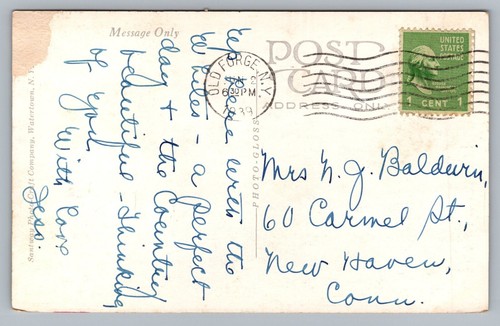 Message Only
POST
CARD
ADDRESS ONLY
OLD FORGE, N.Y.
6 30 PM
1939
UNITED
STATES
POSTAGE
1 CENT 1
Up here with the
Whites - a perfect
day & the Country
beautiful - Thinking
of you
With love
Jess.
Mrs N. J. Baldwin,
60 Carmel St.,
New Haven,
Conn.
PHOTO-GLOSS
Santway Photo-Craft Company, Watertown, N. Y.